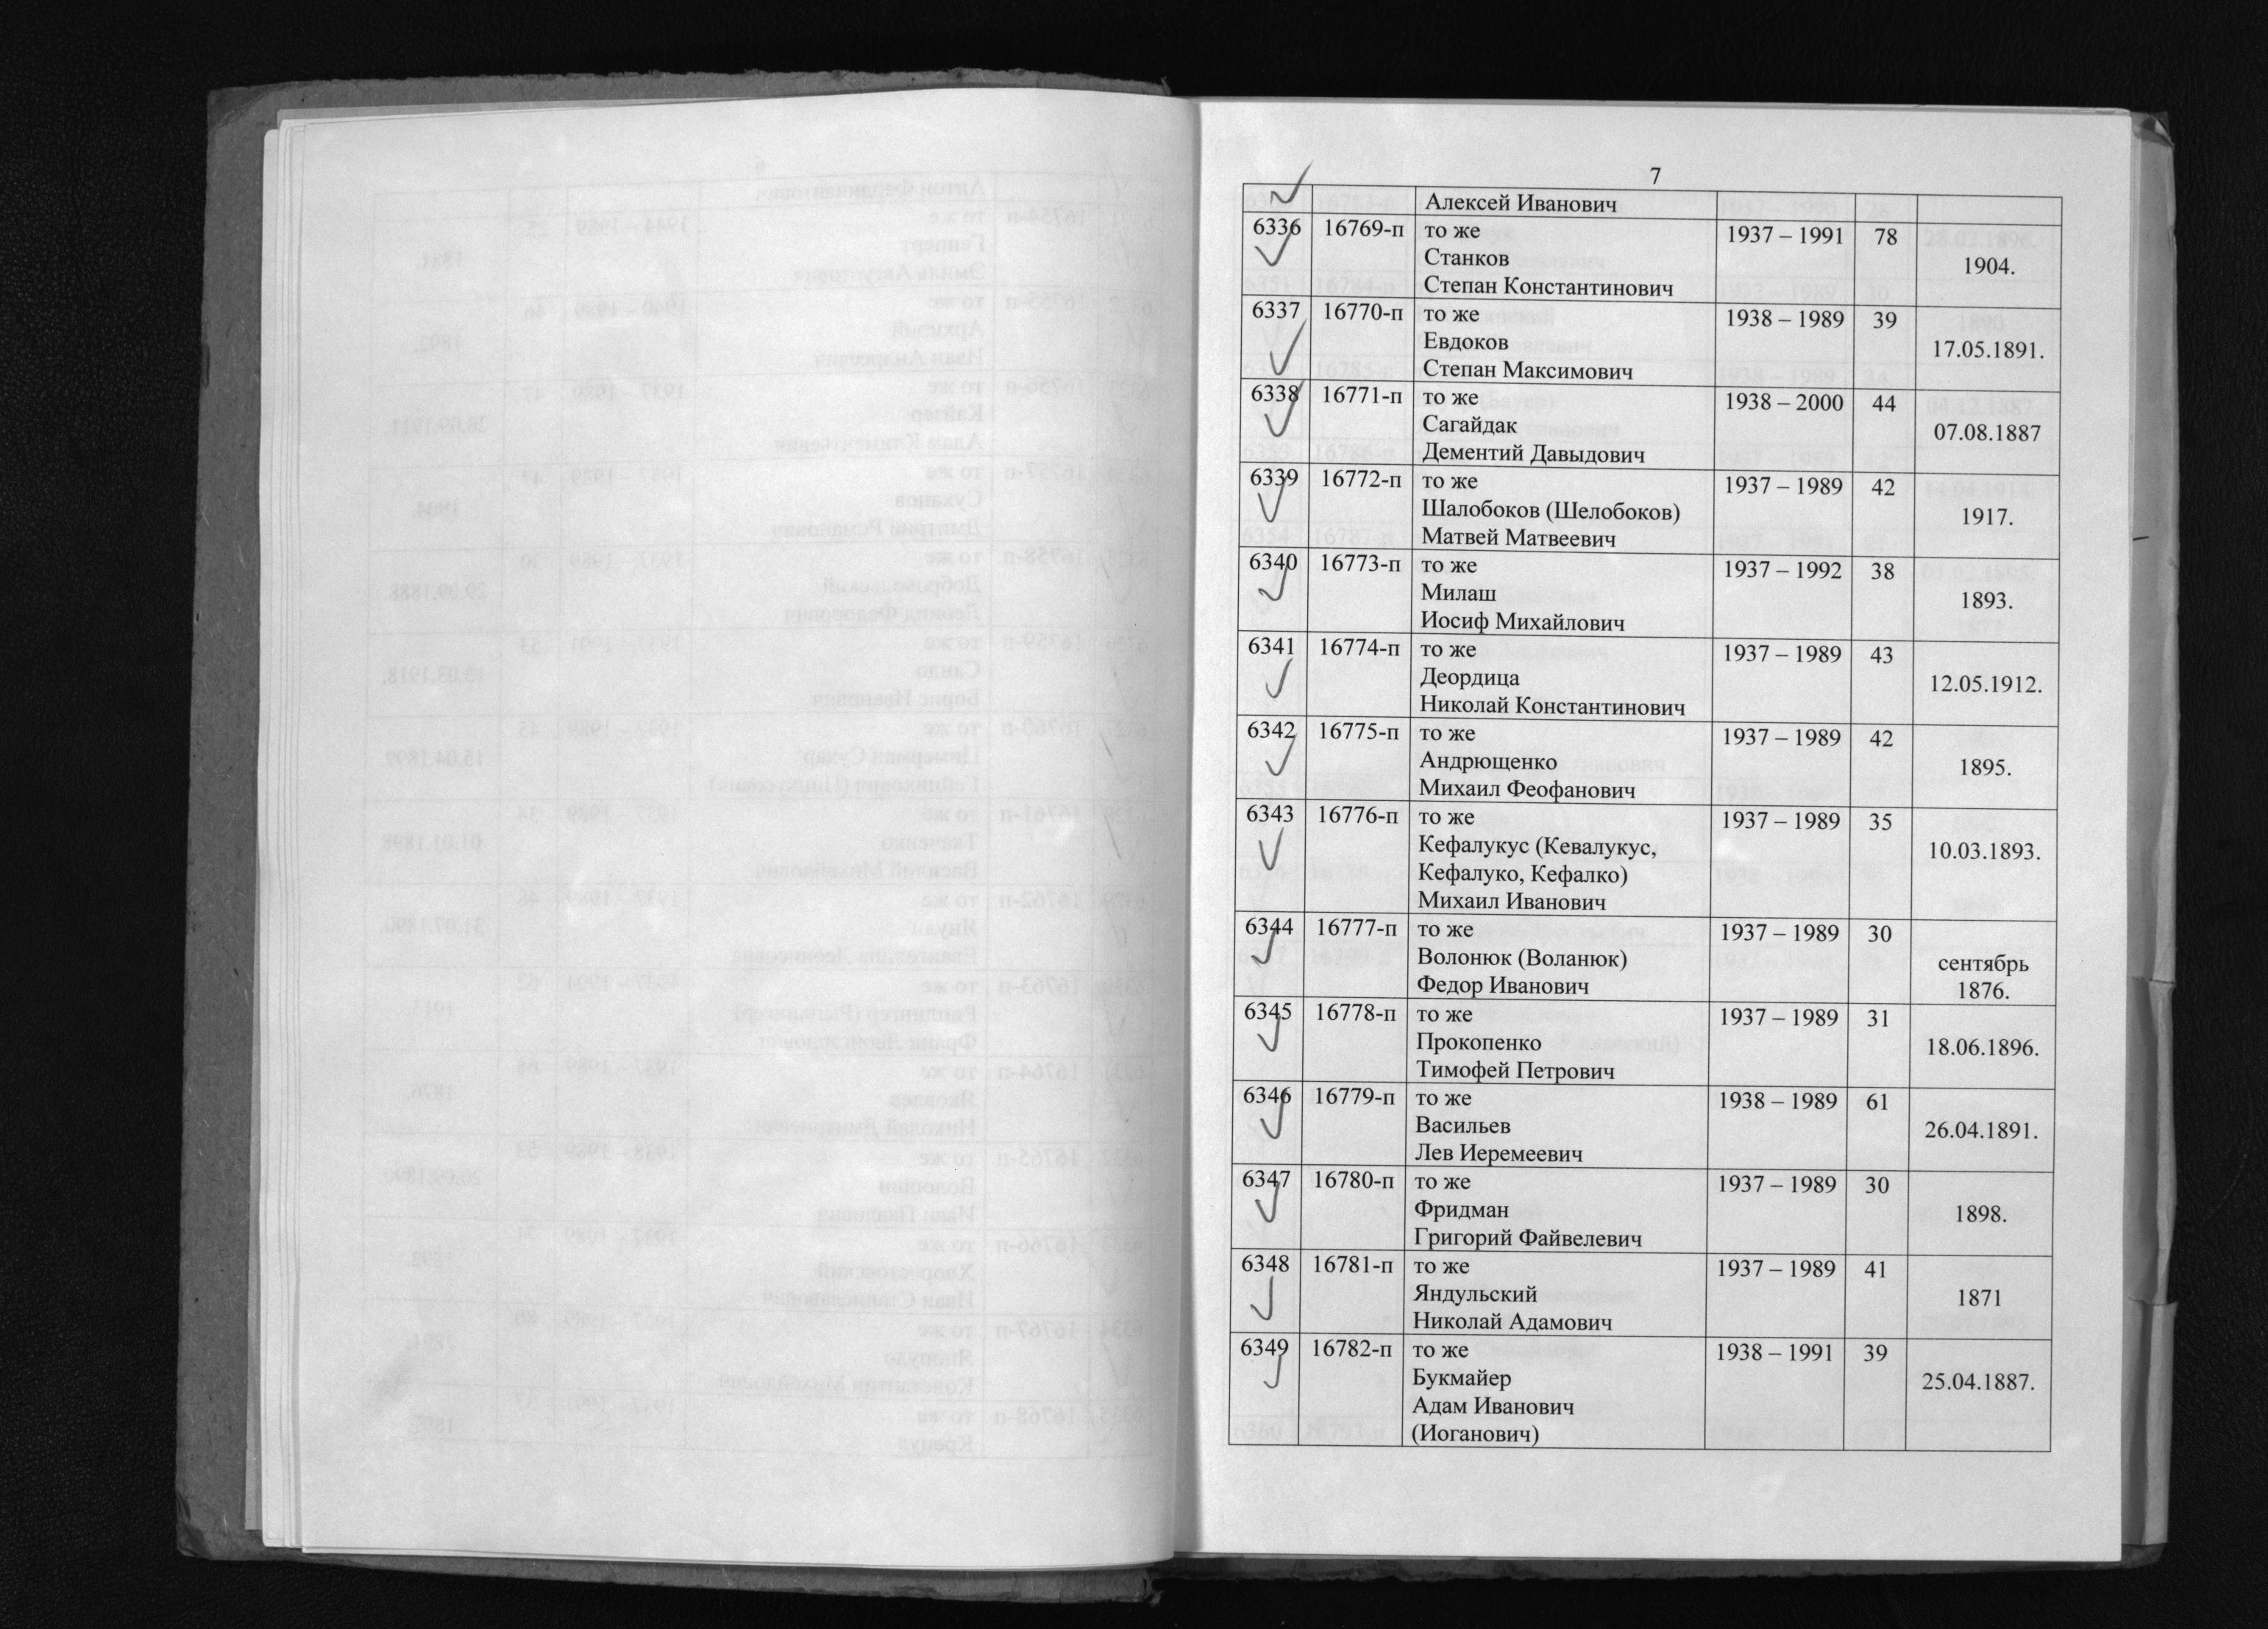 7
Алексей Иванович
6336 16769-п то же 1937 – 1991 78
Станков 1904.
Степан Константинович
6337 16770-п то же 1938 – 1989 39
Евдоков 17.05.1891.
Степан Максимович
6338 16771-п то же 1938 – 2000 44
Сагайдак 07.08.1887
Дементий Давыдович
6339 16772-п то же 1937 – 1989 42
Шалобоков (Шелобоков) 1917.
Матвей Матвеевич
6340 16773-п то же 1937 – 1992 38
Милаш 1893.
Иосиф Михайлович
6341 16774-п то же 1937 – 1989 43
Деордица 12.05.1912.
Николай Константинович
6342 16775-п то же 1937 – 1989 42
Андрющенко 1895.
Михаил Феофанович
6343 16776-п то же 1937 – 1989 35
Кефалукус (Кевалукус, 10.03.1893.
Кефалуко, Кефалко)
Михаил Иванович
6344 16777-п то же 1937 – 1989 30
Волонюк (Воланюк) сентябрь
Федор Иванович 1876.
6345 16778-п то же 1937 – 1989 31
Прокопенко 18.06.1896.
Тимофей Петрович
6346 16779-п то же 1938 – 1989 61
Васильев 26.04.1891.
Лев Иеремеевич
6347 16780-п то же 1937 – 1989 30
Фридман 1898.
Григорий Файвелевич
6348 16781-п то же 1937 – 1989 41
Яндульский 1871
Николай Адамович
6349 16782-п то же 1938 – 1991 39
Букмайер 25.04.1887.
Адам Иванович
(Иоганович)